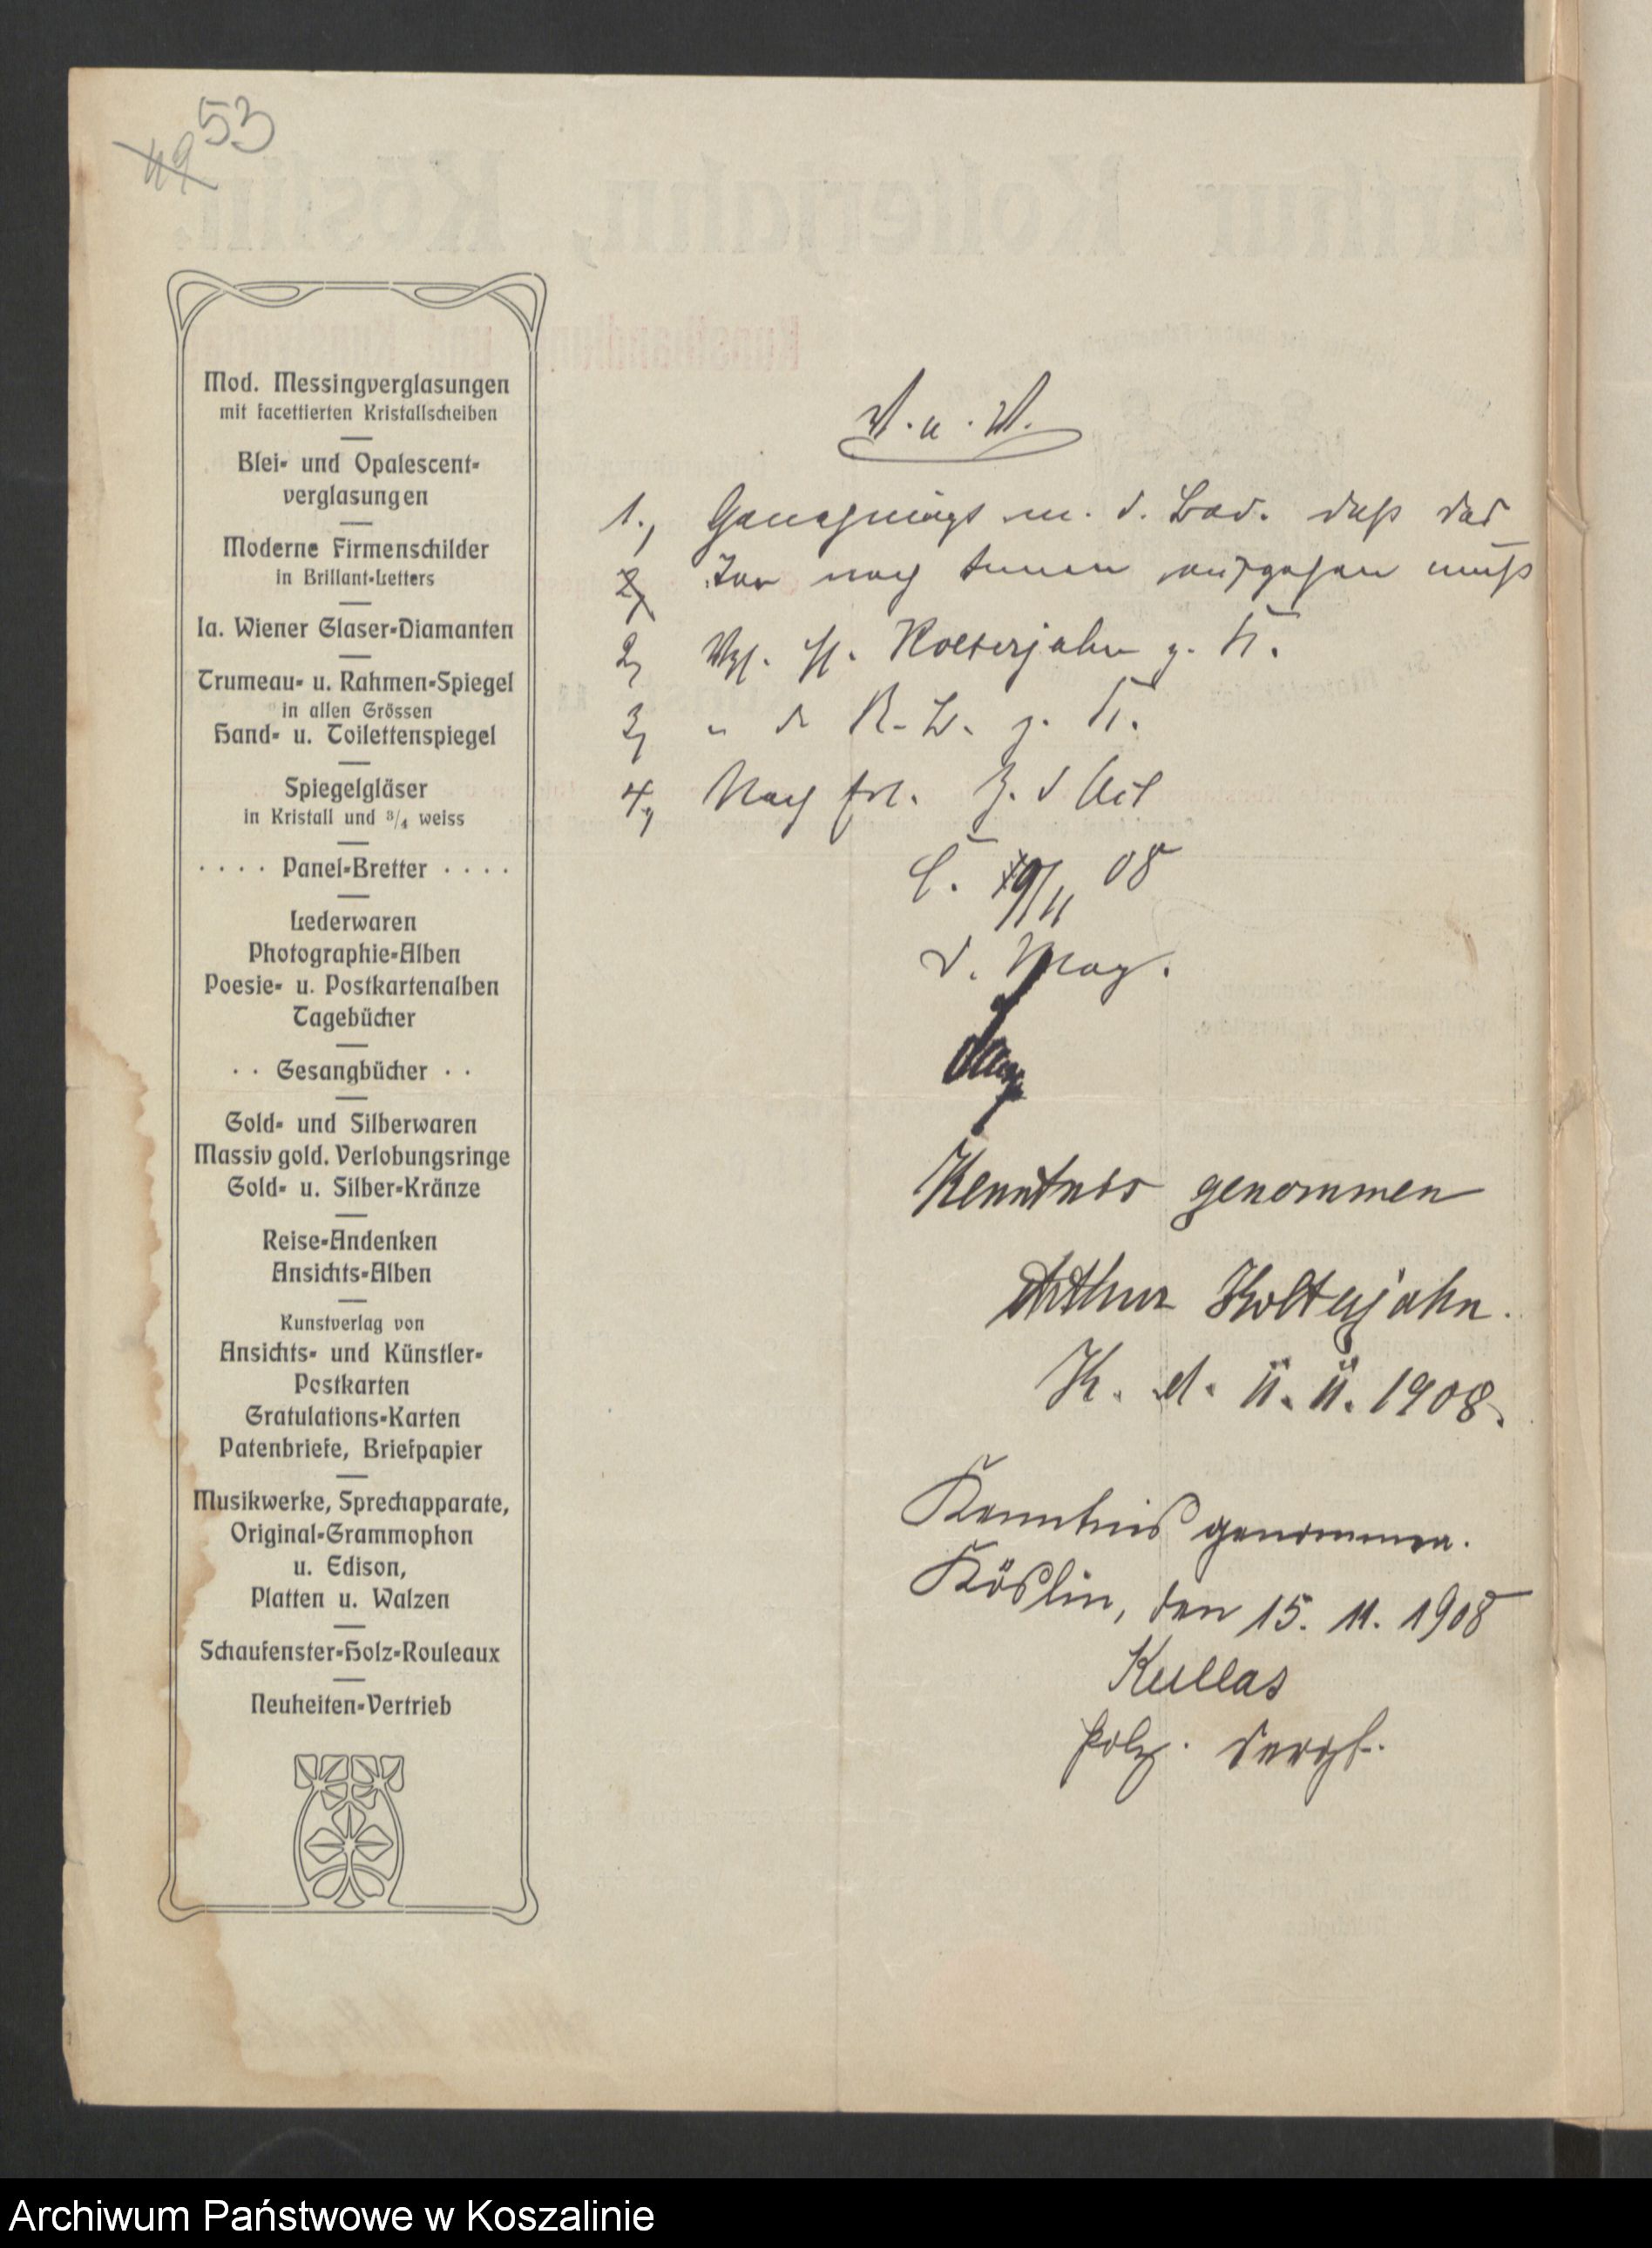 53
49
Mod. Messingverglasungen
mit facettierten Kristallscheiben
Blei- und Opalescent-
verglasungen
Moderne Firmenschilder
in Brillant-Letters
Ia. Wiener Glaser-Diamanten
Trumeau- u. Rahmen-Spiegel
in allen Grössen
Hand- u. Toilettenspiegel
Spiegelgläser
in Kristall und 3/4 weiss
· · · · Panel-Bretter · · · ·
Lederwaren
Photographie-Alben
Poesie- u. Postkartenalben
Tagebücher
· · Gesangbücher · ·
Gold- und Silberwaren
Massiv gold. Verlobungsringe
Gold- u. Silber-Kränze
Reise-Andenken
Ansichts-Alben
Kunstverlag von
Ansichts- und Künstler-
Postkarten
Gratulations-Karten
Patenbriefe, Briefpapier
Musikwerke, Sprechapparate,
Original-Grammophon
u. Edison,
Platten u. Walzen
Schaufenster-Holz-Rouleaux
Neuheiten-Vertrieb
1., m. d. Bed. daß das
nach innen aufgehen muß
2, H. Kolterjahn z. K.
3, " d. z. K.
4, Nach
C. 9/11 08
d. Mag.
Kenntnis genommen
Arthur Kolterjahn.
K. d. 11. 11. 1908.
Kenntnis genommen.
Köslin, den 15. 11. 1908
Kullas
Polz. Sergt.
Archiwum Państwowe w Koszalinie